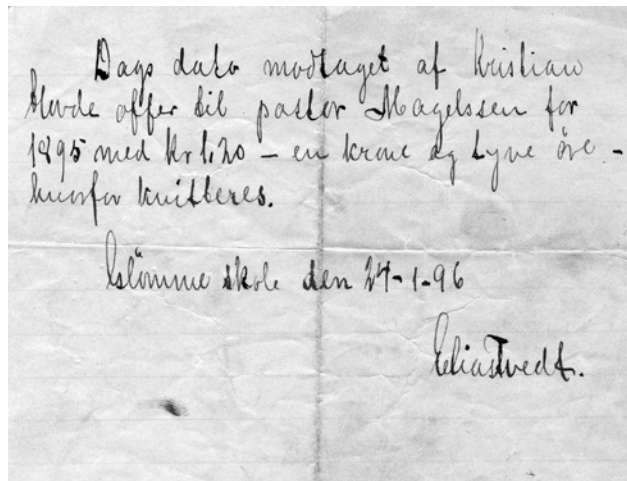 Dags dato modtaget af Kristian
Hovde offer til pastor Magelssen for
1895 med kr 1,20 – en krone og tyve öre –
hvorfor kvitteres.
skole den 24-1-96
Elias Tvedt.